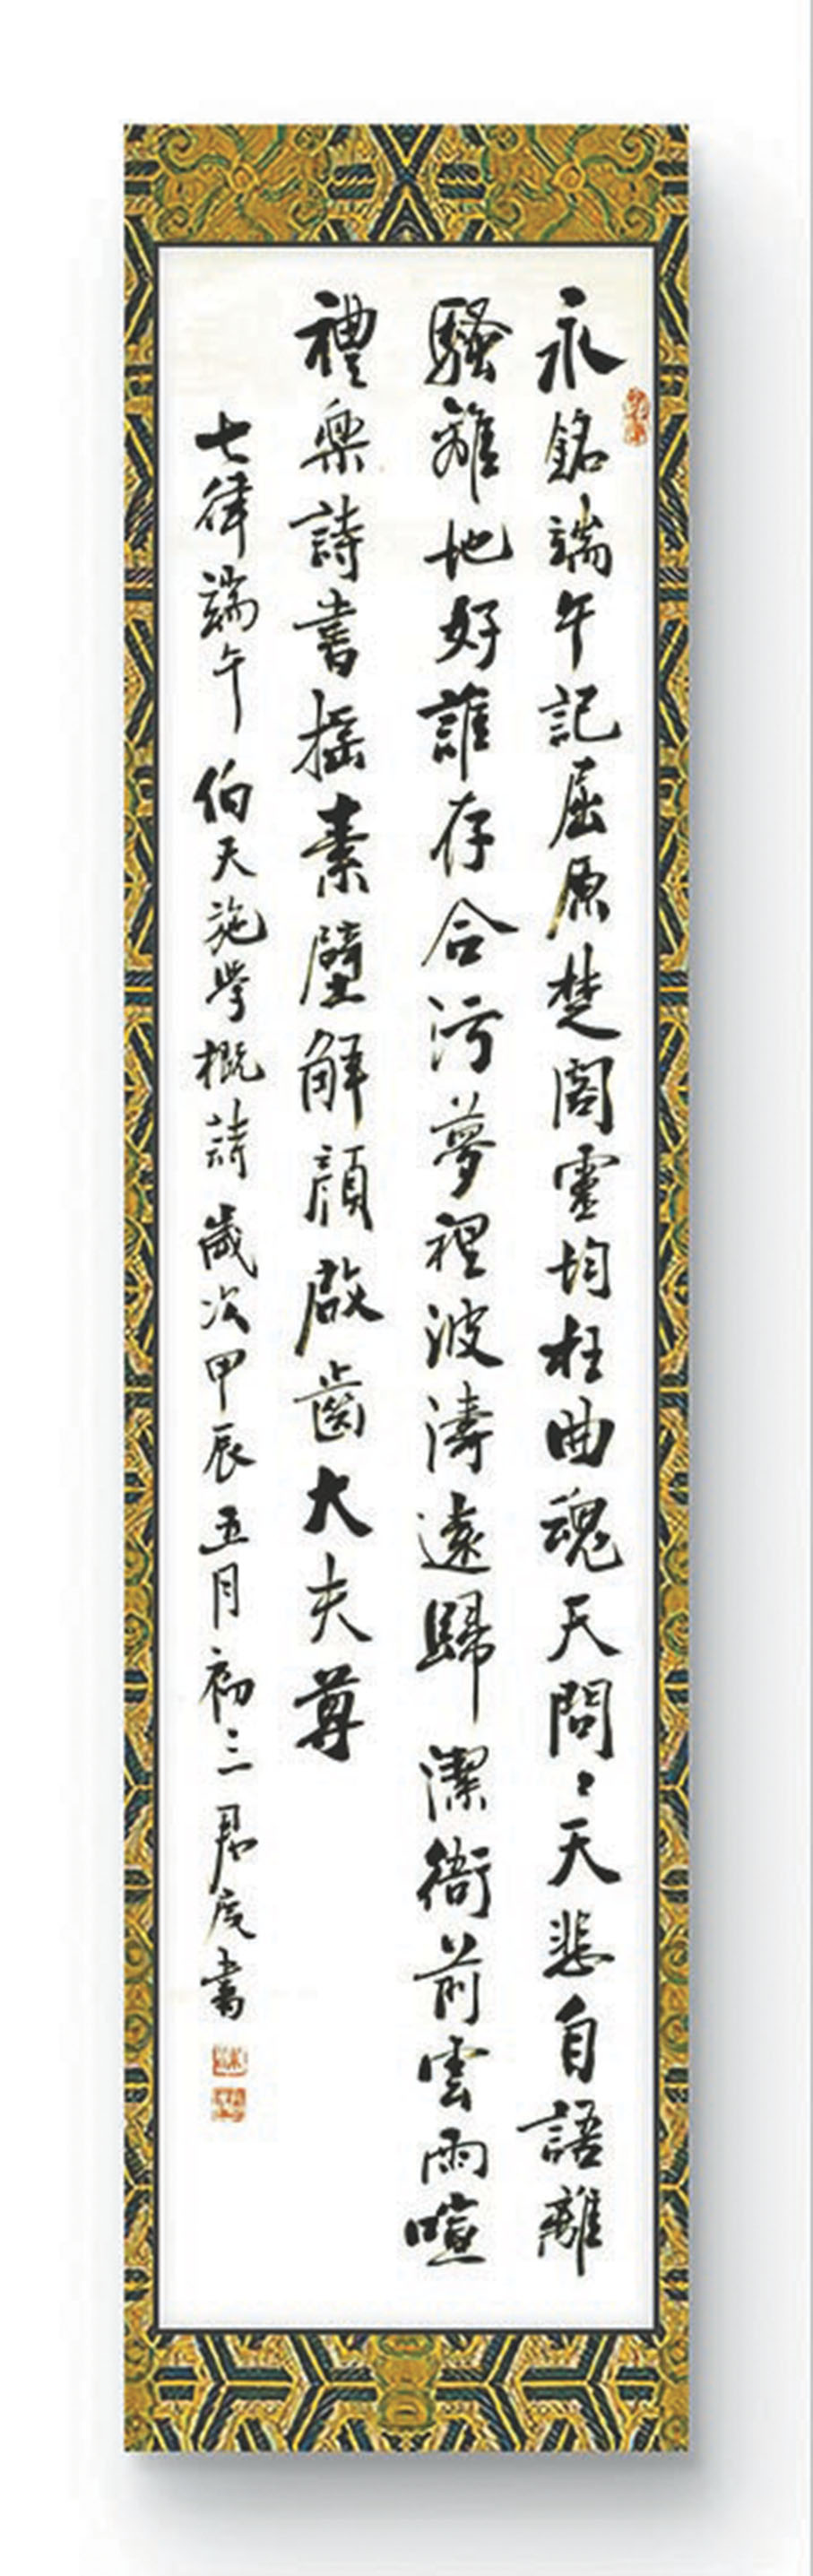 永銘端午記屈原楚閣靈均枉曲魂天問〻天悲自語離
騷離地好誰存合污夢裡波濤遠歸潔衙前雲雨喧
禮樂詩書摇素壁解顔啟齒大夫尊
七律端午 伯天施學概詩 歲次甲辰五月初三 君度書